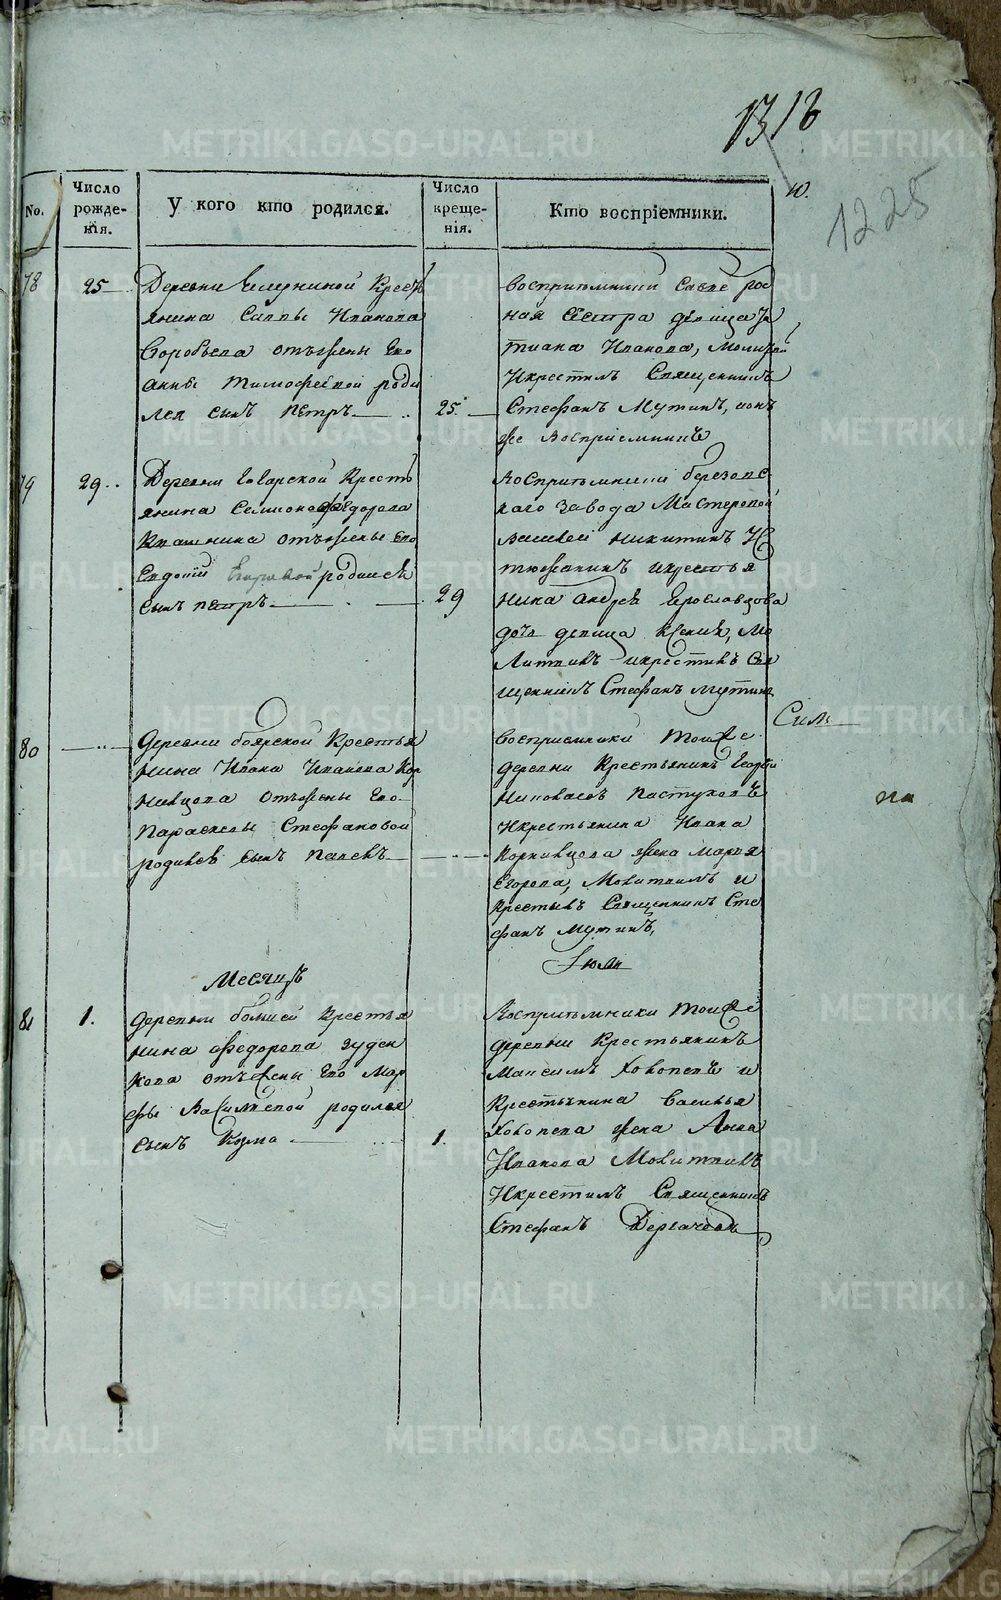 1318
1225
ю.
No.
Число рожде-нія.
У кого кто родился.
Число креще-нія.
Кто воспріемники.
78
25
Деревни Челуниной Кресть
янина Саввы Иванова
Воробьева отъ жены Его
Анны Тимофеевой роди
лся сынъ Петръ
25.
Восприемники Савве род
ная сестра девица
тиана Иванова, Молитвил
Икрестилъ Священникъ
Стефанъ Мутинъ, ионъ
же восприемникъ
79
29
Деревни Боярской Кресть
янина Симиона Федорова
Квашнина отъ жены Его
Евдокии Егоровой родился
сынъ петръ
29
Восприемники березовс
каго Завода Мастеровой
василей никитинъ
икрестья
нина андрея Ерославцова
дочь девица Ксения, Мо
литвилъ икрестилъ Свя
щенникъ Стефанъ мутинъ
Сим
80
Деревни боярской Крестья
нина Ивана Иванова Кор
нивцова отъ жены Его
Параскевы Стефановой
родился сынъ Павелъ
Восприемники тоиже
деревни Крестьянинъ Георги
Пастуховъ
Икрестьянина Ивана
Корнивцова жена Марья
Егорова, Молитвилъ и
Крестилъ Священникъ Сте
фанъ Мутинъ,
на
Месяцъ
Iюли
81
1.
Деревни болшей Крестья
нина Федорова Зуден
кова отъ жены Его Мар
фы Василиевой родился
сынъ Козма
1.
Восприемники тоиже
деревни Крестьянинъ
Максимъ Коковенъ и
Крестьянина Василья
Коковена жена Анна
Иванова Молитвилъ
Икрестилъ Священникъ
Стефанъ Дергачевъ
METRIKI.GASO-URAL.RU